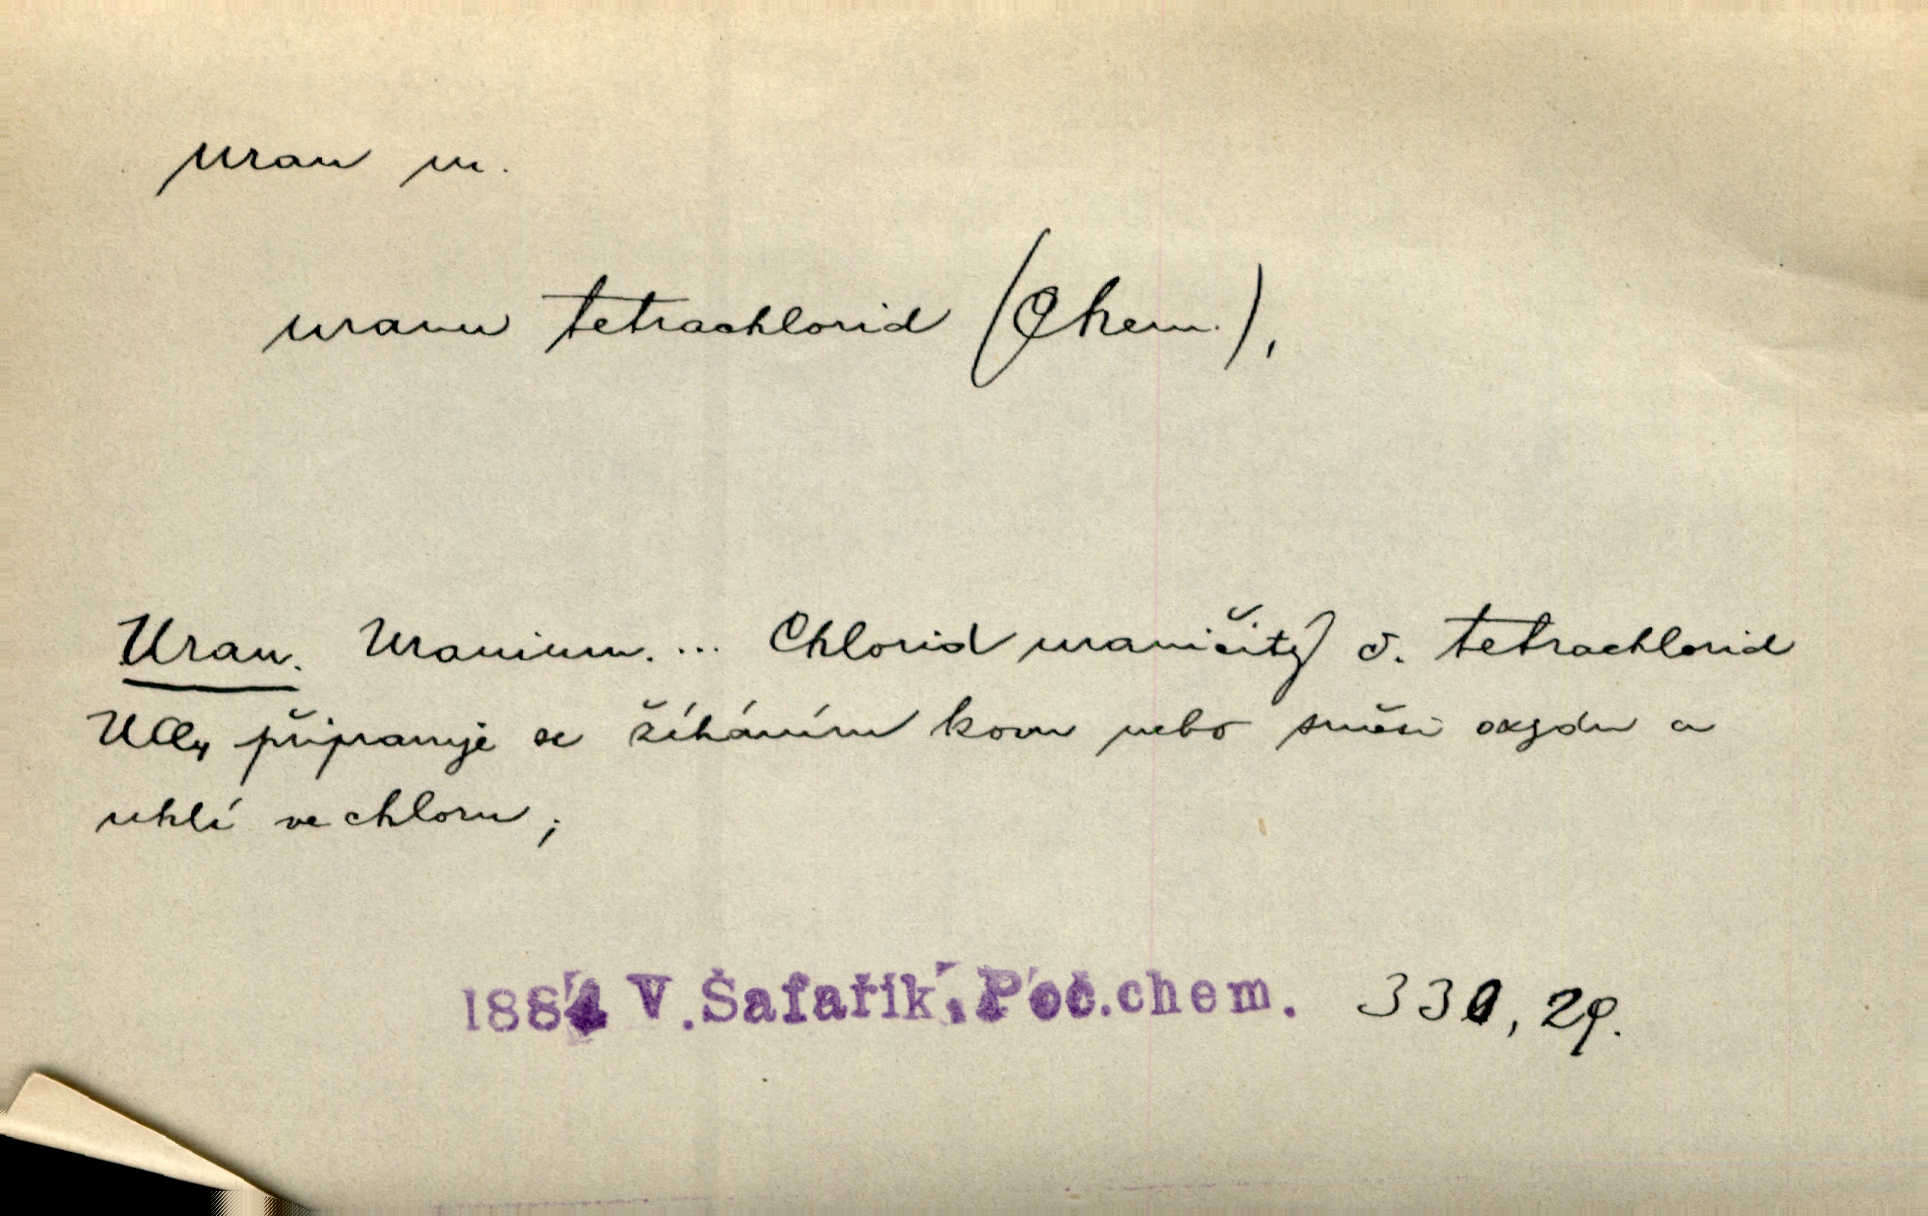 uran m.
uranu tetrachlorid (Chem.),
Uran. Uranium. ... Chlorid uraničitý č. tetrachlorid
UCl4 připravuje se žíháním kovu nebo směsi oxydu a
uhlí ve chloru;
1884 V. Šafařík, Poč.chem. 330, 29.